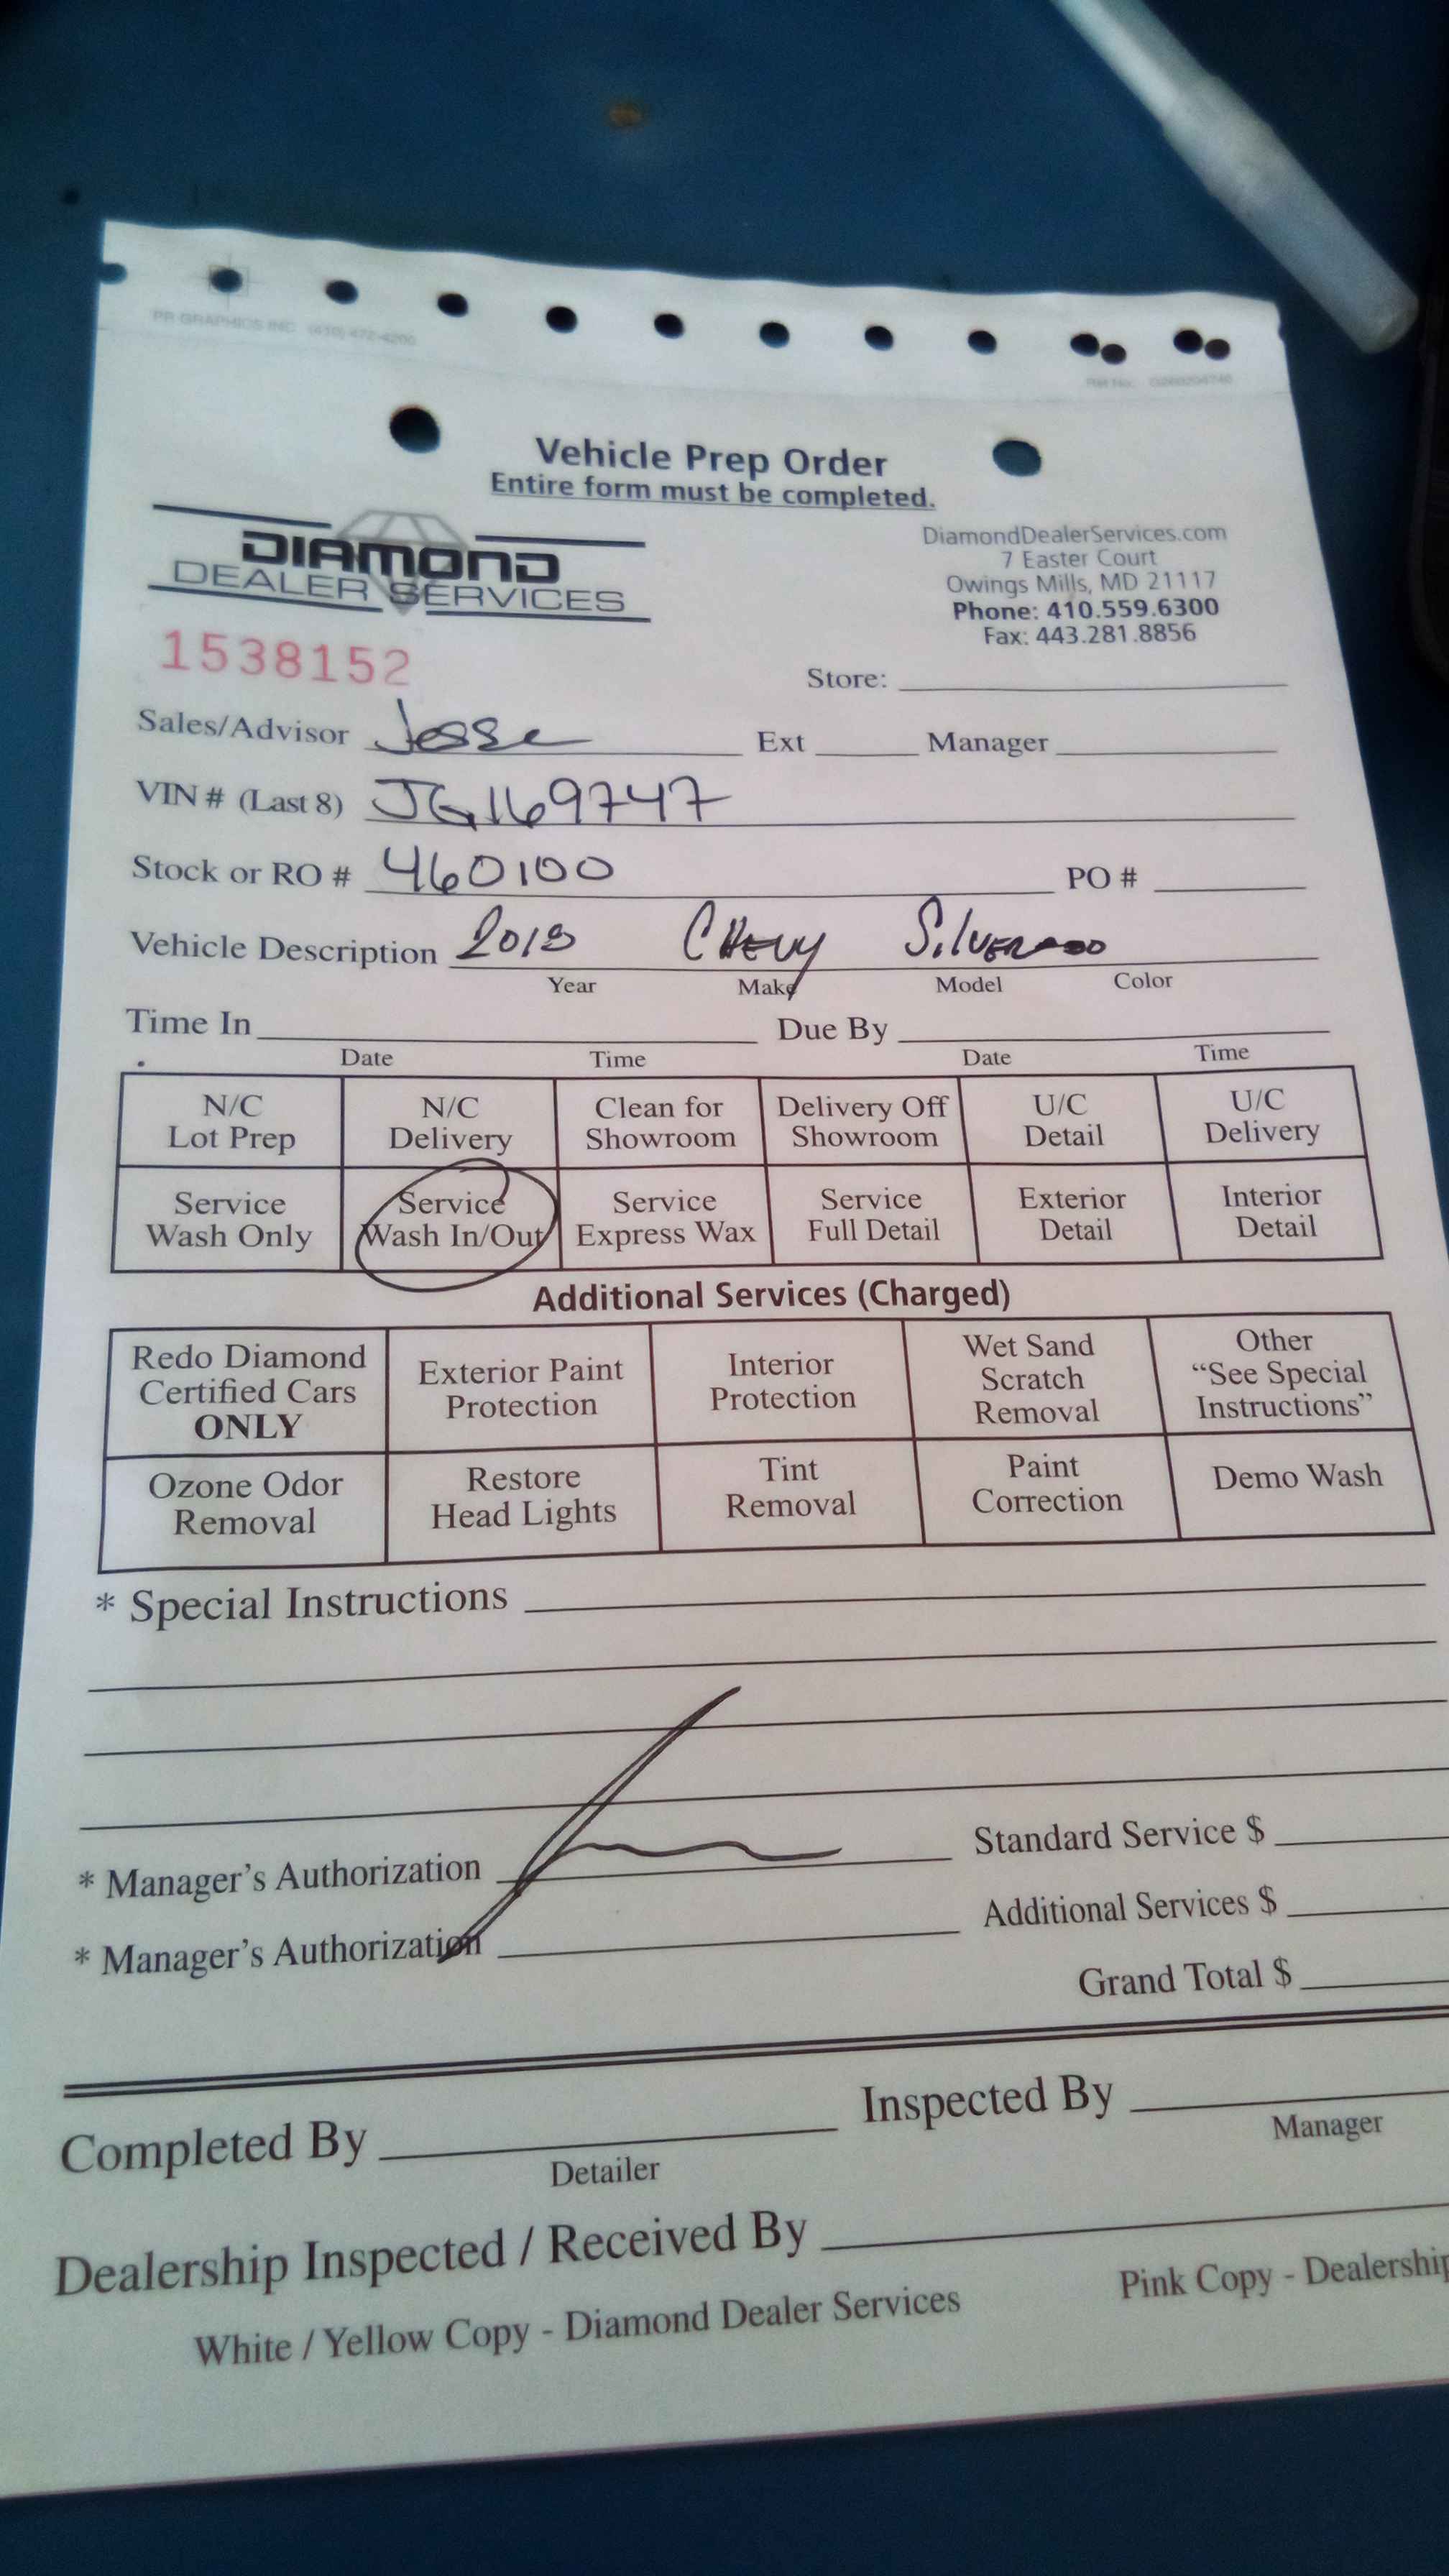 PR GRAPHICS INC. (410) 472-4200
Vehicle Prep Order
Entire form must be completed.
DIAMOND
DEALER SERVICES
DiamondDealerServices.com
7 Easter Court
Owings Mills, MD 21117
Phone: 410.559.6300
Fax: 443.281.8856
1538152
Store:
Sales/Advisor Jesse Ext Manager
VIN # (Last 8) JG169747
Stock or RO # 460100 PO #
Vehicle Description 2018 CHEVY SILVERADO
Year Make Model Color
Time In Due By
Date Time Date Time
N/C Lot Prep N/C Delivery Clean for Showroom Delivery Off Showroom U/C Detail U/C Delivery
Service Wash Only Service Wash In/Out Service Express Wax Service Full Detail Exterior Detail Interior Detail
Additional Services (Charged)
Redo Diamond Certified Cars ONLY Exterior Paint Protection Interior Protection Wet Sand Scratch Removal Other “See Special Instructions”
Ozone Odor Removal Restore Head Lights Tint Removal Paint Correction Demo Wash
* Special Instructions
* Manager's Authorization Standard Service $
* Manager's Authorization Additional Services $
Grand Total $
Completed By Inspected By
Detailer Manager
Dealership Inspected / Received By
White / Yellow Copy - Diamond Dealer Services Pink Copy - Dealership